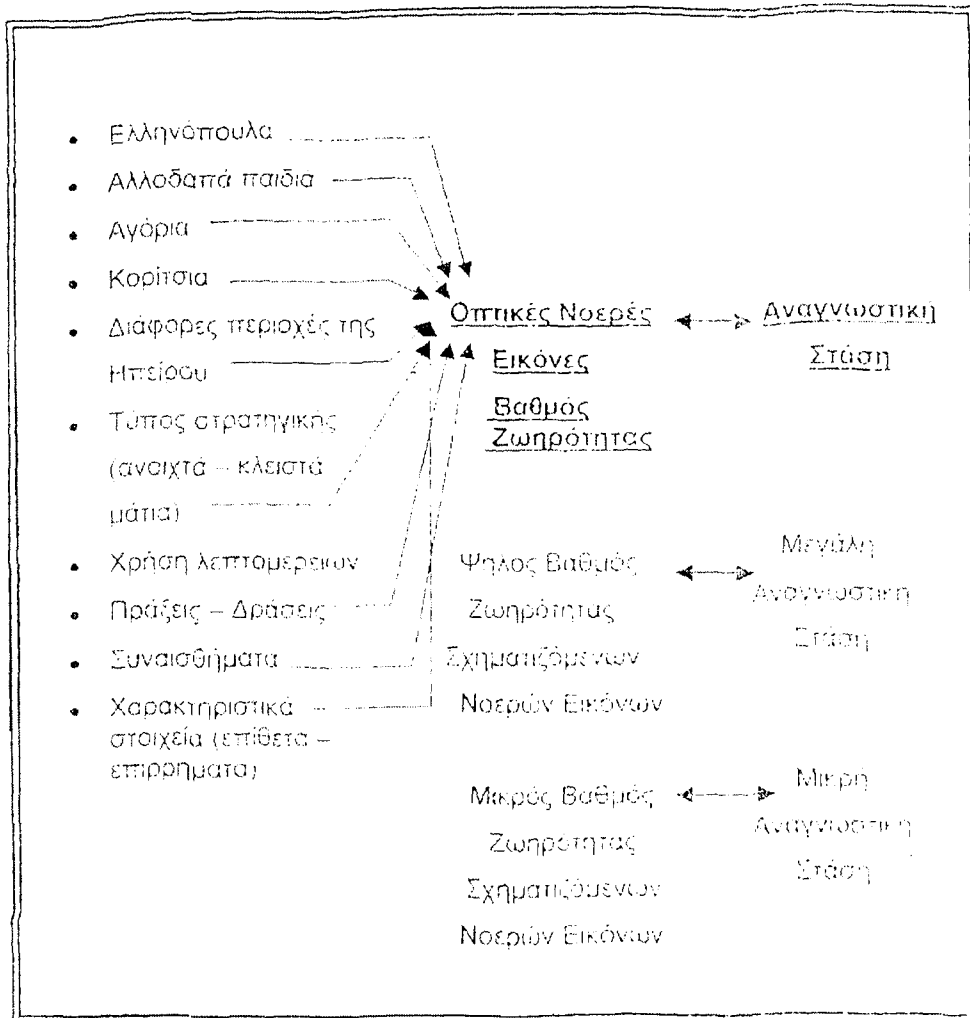 • Ελληνόπουλα
• Αλλοδαπά παιδια
• Αγόρια
• Κορίτσια
• Διάφορες περιοχές της
Ηπείρου
• Τύπος στρατηγικής
(ανοιχτά – κλειστά
μάτια)
• Χρήση λεπτομερειων
• Πράξεις – Δράσεις
• Συναισθήματα
• Χαρακτηριστικά
στοιχεία (επίθετα –
επιρρηματα)
Οπτικές Νοερές
Εικόνες
Βαθμός
Ζωηρότητας
Αναγνωστική
Στάση
Ψηλος Βαθμός
Ζωηρότητας
Σχηματιζόμενων
Νοερών Εικόνων
Μεγάλη
Αναγνωστικη
Στάση
Μικρός Βαθμός
Ζωηρότητας
Σχηματιζόμενων
Νοερών Εικόνων
Μικρή
Αναγνωστικη
Στάση